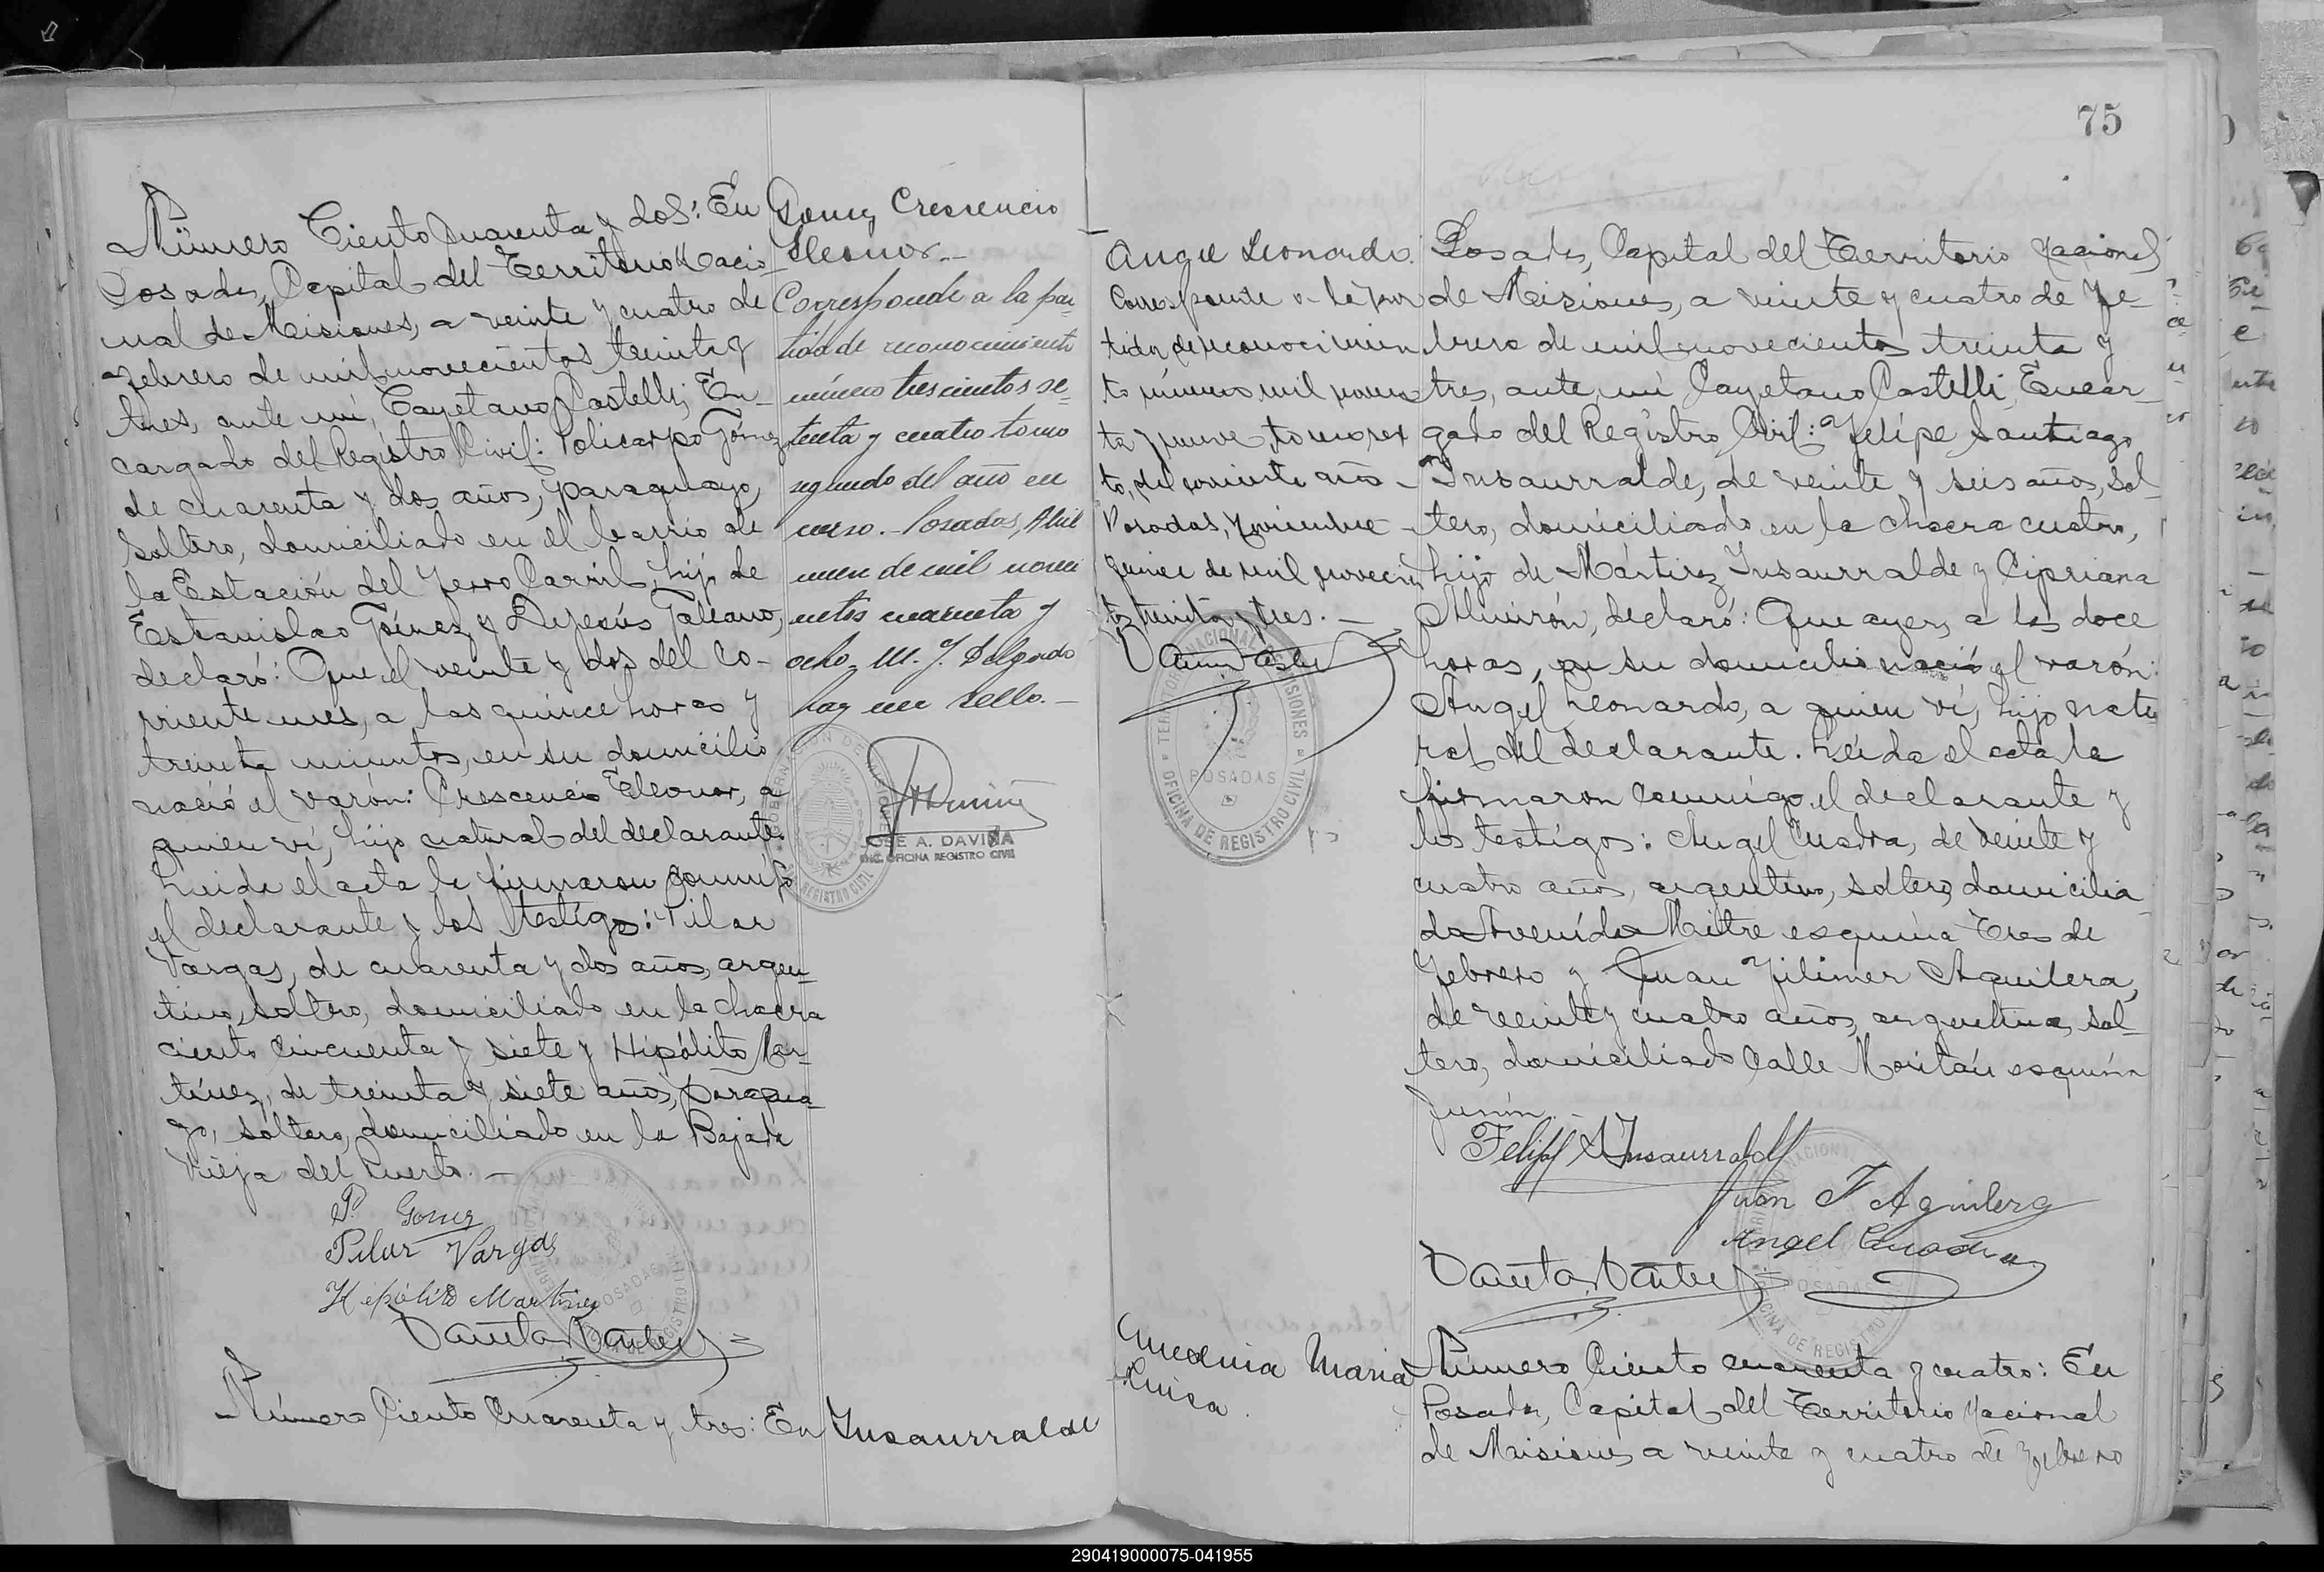 Número Ciento Cuarenta y dos: En
Posadas, Capital del Territorio Nacio-
nal de Misiones, a veinte y cuatro de
Febrero de mil novecientos treinta y
tres, ante mí, Cayetano Castelli, En-
cargado del Registro Civil: Policarpo Gómez,
de cuarenta y dos años, paraguayo,
soltero, domiciliado en el barrio de
la Estación del Ferro Carril, hijo de
Estanislao Gómez y Dejesús Galeano,
declaró: Que el veinte y dos del co-
rriente mes, a las quince horas y
treinta minutos, en su domicilio
nació el varón: Crescencio Eleonor, a
quien ví, hijo natural del declarante.
Leida el acta la firmaron conmigo
el declarante y los testigos: Pilar
Vargas, de cuarenta y dos años, argen-
tino, soltero, domiciliado en la chacra
ciento cincuenta y siete y Hipólito Mar-
tínez, de treinta y siete años, paragua-
yo, soltero, domiciliado en la Bajada
Vieja del Puerto.-
P. Gomez
Pilar Vargas
Hipólito Martinez
Número Ciento Cuarenta y tres: En
Gomez Crescencio
Eleonor.-
Corresponde a la par-
tida de reconocimiento
número trescientos se-
tenta y cuatro tomo
segundo del año en
curso.- Posadas, Abril
de mil noveci
entos cuarenta y
ocho. M. J. Delgado
hay un sello.-
JOSE A. DAVIÑA
ENC. OFICINA REGISTRO CIVIL
Insaurralde
75
Angel Leonardo.
Corresponde a la par
tida de reconocimien
to número mil noven
ta y nueve, tomo sex
to, del corriente año-
Posadas, Noviembre
quince de mil novecien
tos treinta y tres.-
TERRITORIO NACIONAL DE MISIONES
POSADAS
OFICINA DE REGISTRO CIVIL
Posadas, Capital del Territorio Nacional
de Misiones, a veinte y cuatro de Fe-
brero de mil novecientos treinta y
tres, ante mí Cayetano Castelli, Encar-
gado del Registro Civil: Felipe Santiago
Insaurralde, de veinte y seis años, sol-
tero, domiciliado en la chacra cuatro,
hijo de Mártirez Insaurralde y Cipriana
Almirón, declaró: Que ayer, a las doce
horas, en su domicilio nació el varón:
Angel Leonardo, a quien ví, hijo natu
ral del declarante. Leída el acta la
firmaron conmigo, el declarante y
los testigos: Angel Cuadra, de veinte y
cuatro años, argentino, soltero, domicilia
do Avenida Mitre esquina Tres de
Febrero y Juan Aguilera,
de veinte y cuatro años, argentino, sol-
tero, domiciliado Calle esquina
Junín.-
Felipe S Insaurralde
Juan F Aguilera
Angel Cuadra
Maria
Luisa.
Número Ciento cuarenta y cuatro: En
Posadas, Capital del Territorio Nacional
de Misiones a veinte y cuatro de Febrero
290419000075-041955